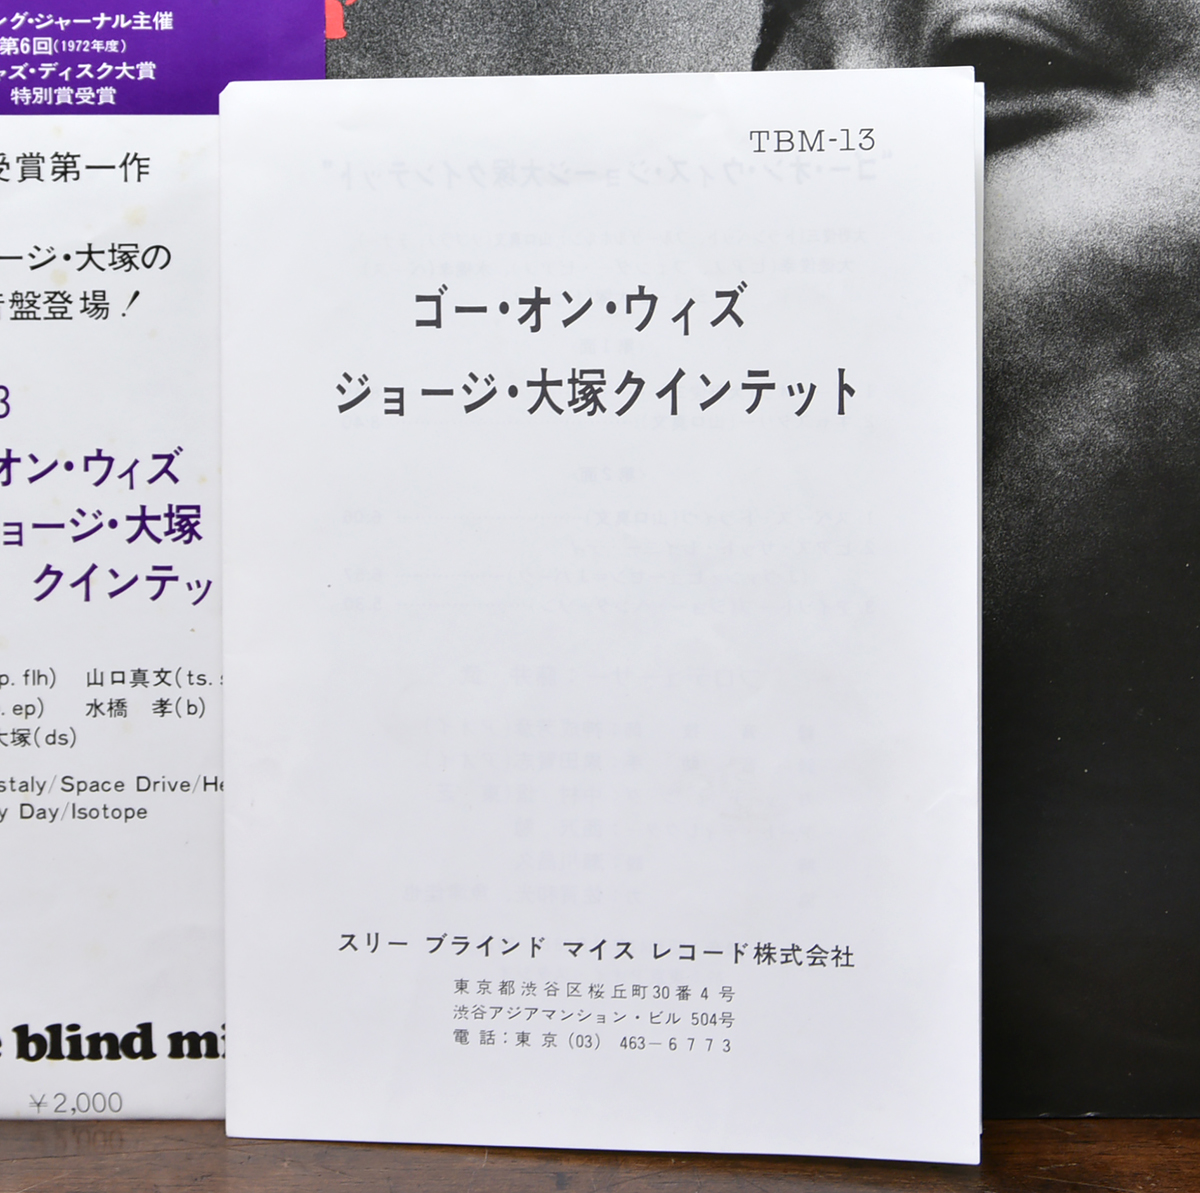 ング・ジャーナル主催
第6回(1972年度)
ャズ・ディスク大賞
特別賞受賞
受賞第一作
ージ・大塚の
音盤登場!
3
オン・ウィズ
ョージ・大塚
クインテッ
p. flh) 山口真文(ts.
. ep) 水橋 孝(b)
大塚(ds)
staly/Space Drive/He
y Day/Isotope
e blind mi
¥2,000
TBM-13
ゴー・オン・ウィズ
ジョージ・大塚クインテット
スリー ブラインド マイス レコード株式会社
東京都渋谷区桜丘町30番4号
渋谷アジアマンション・ビル 504号
電話:東京(03) 463-6773